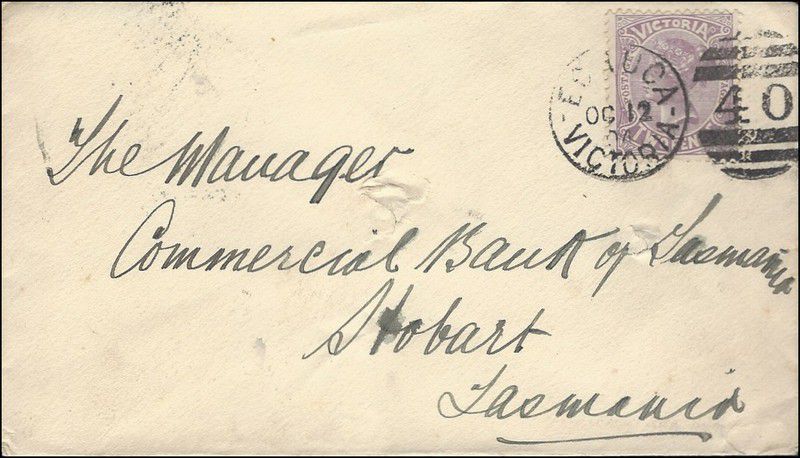 VICTORIA
POSTAGE
ECHUCA
OC 12
VICTORIA
40
The Manager
Commercial Bank of Tasmania
Hobart
Tasmania